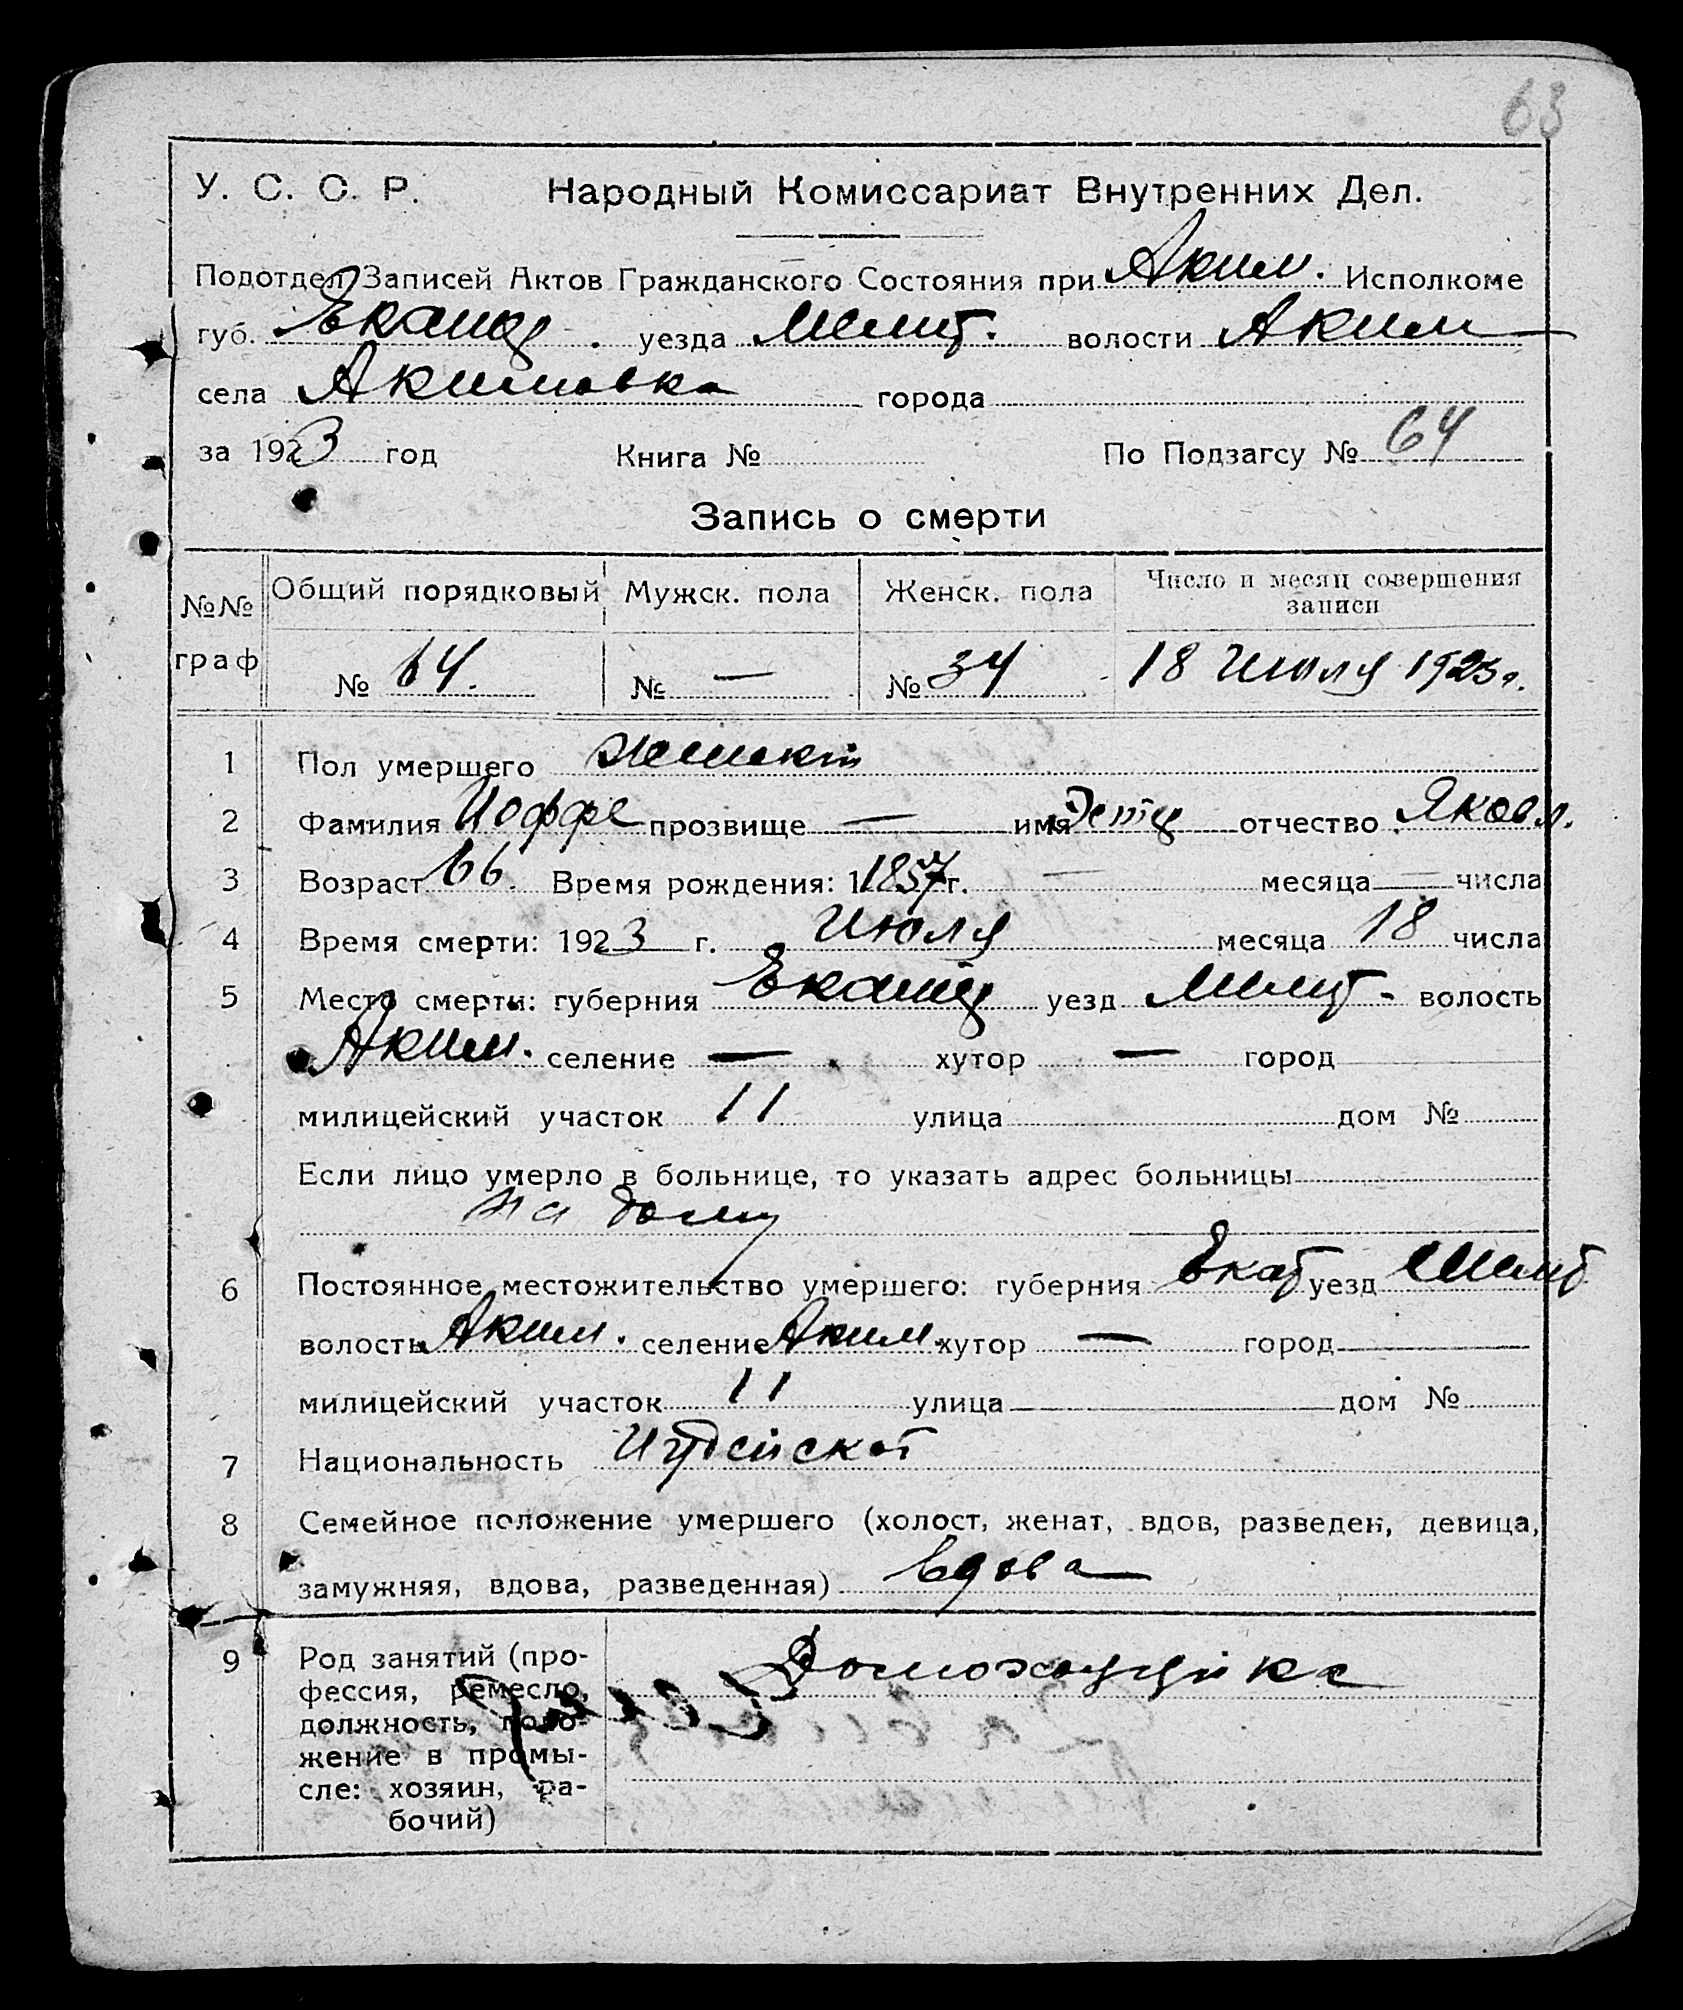 63
У. С. С. Р. Народный Комиссариат Внутренних Дел.
Подотдел Записей Актов Гражданского Состояния при Аким. Исполкоме
губ. уезда Мелит. волости Аким
села Акимовка города
за 1923 год Книга № По Подзагсу № 64
Запись о смерти
№№ граф Общий порядковый Мужск. пола Женск. пола Число и месяц совершения
записи
№ 64. № — № 34 18 Июля 1923 г.
1 Пол умершего
2 Фамилия Иоффе прозвище — имя отчество Яковл.
3 Возраст 66. Время рождения: 1 1857 г. — месяца — числа
4 Время смерти: 1923 г. Июля месяца 18 числа
5 Место смерти: губерния уезд Мелит. волость
Аким. селение — хутор — город
милицейский участок 11 улица дом №
Если лицо умерло в больнице, то указать адрес больницы
на дому
6 Постоянное местожительство умершего: губерния Екат уезд Мелит
волость Аким. селение Аким. хутор — город
милицейский участок 11 улица дом №
7 Национальность Иудейской
8 Семейное положение умершего (холост, женат, вдов, разведен, девица,
замужняя, вдова, разведенная) вдова
9 Род занятий (про-
фессия, ремесло,
должность, поло-
жение в промы-
сле: хозяин, ра-
бочий)